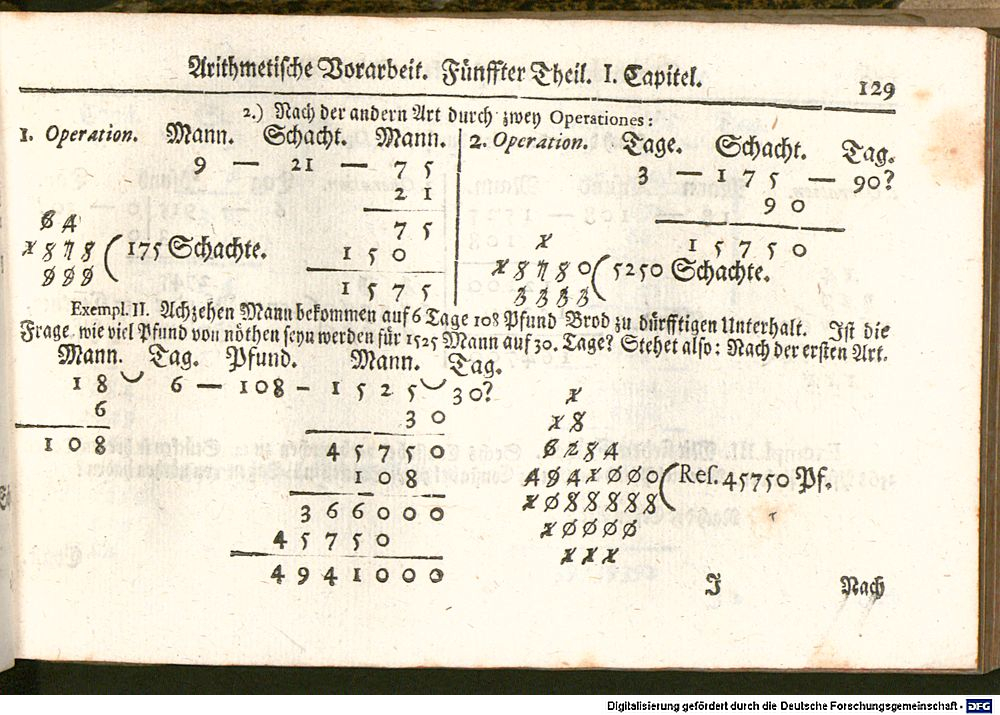 Arithmetische Vorarbeit. Fünffter Theil. I. Capitel. 129
2.) Nach der andern Art durch zwey Operationes:
1. Operation. Mann. Schacht. Mann.
9 — 21 — 75
21
75
150
1575
84
1878 ( 175 Schachte.
999
2. Operation. Tage. Schacht. Tag.
3 — 175 — 90?
90
15750
1
18780 ( 5250 Schachte.
3333
Exempl. II. Achzehen Mann bekommen auf 6 Tage 108 Pfund Brod zu dürfftigen Unterhalt. Ist die
Frage, wie viel Pfund von nöthen seyn werden für 1525 Mann auf 30. Tage? Stehet also: Nach der ersten Art.
Mann. Tag. Pfund. Mann. Tag.
18 ⌣ 6 — 108 - 1525 ⌣ 30?
6 30
108 45750
108
366000
45750
4941000
1
18
8284
4941000 ( Res. 45750 Pf.
1088888
10000
111
J Nach
Digitalisierung gefördert durch die Deutsche Forschungsgemeinschaft - DFG